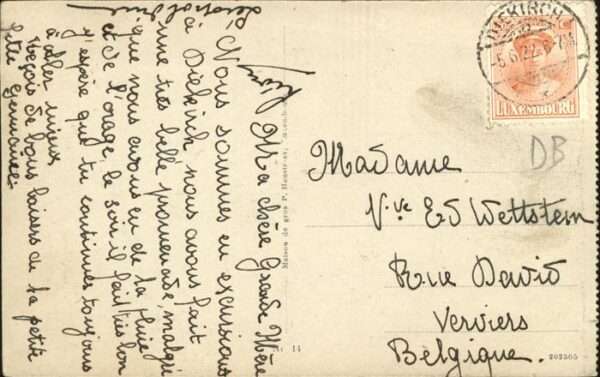 Ma chère Grand Mère
Nous sommes en excursions
à Diekirch nous avons fait
une très belle promenade, malgré
que nous avons eu de la pluie
et de l'orage, le soir il fait très bon
J'espère que tu continues toujours
à aller mieux
Reçois de bons baisers de ta petite
fille Germaine
Léopoldine
DIEKIRCH
-5.6.22.6-7
LUXEMBOURG
DB
Madame
Vve Ed Wettstein
Rue David
Verviers
Belgique.
Maison de gros P. Houstraas,
14
202565